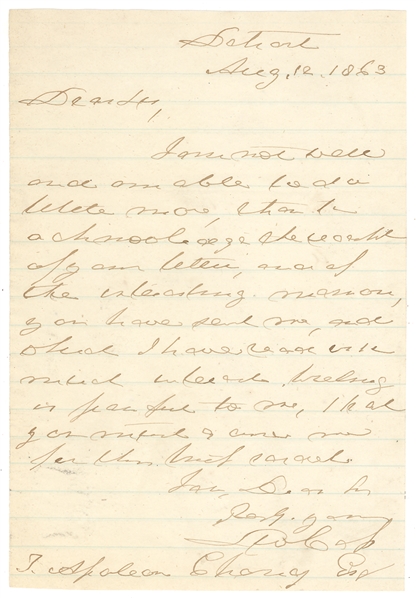 Detroit
Aug. 12. 1863
Dear Sir,
I am not well
and am able to do
little more, than to
acknowledge the receipt
of your letter, and of
the interesting memoir,
you have sent me, and
which I have read with
much interest. Writing
is painful to me, &
you must excuse me
for this brief
I am, Dear Sir
Resp. yours
Lew Cass
T. Apoleon Cheney Esq